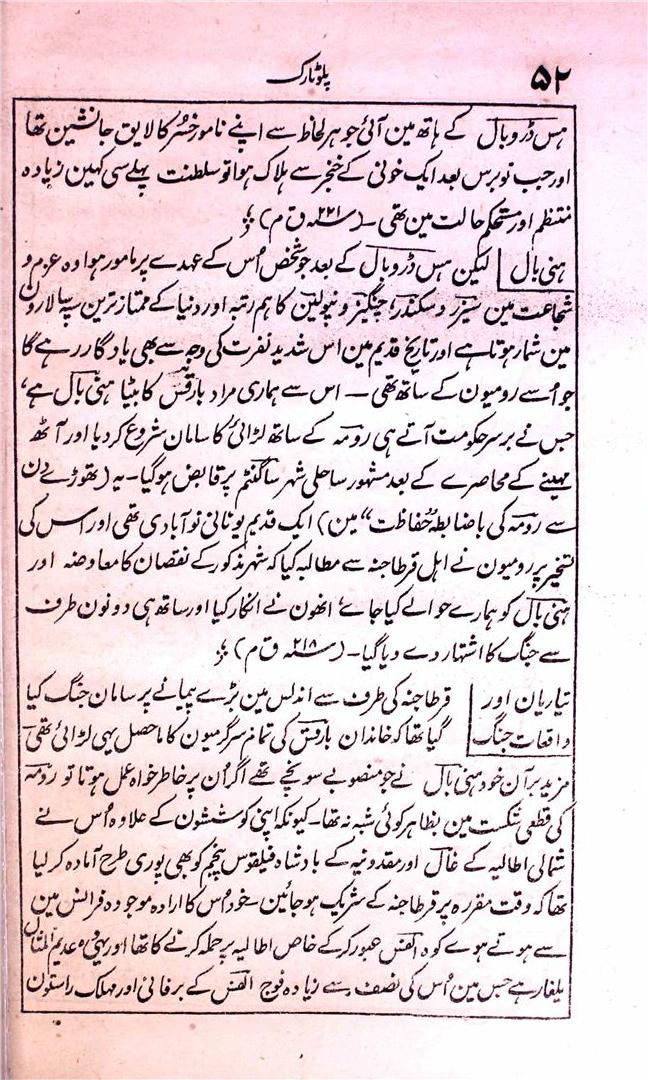 ۵۲
پلوٹارک
ہس ڈروبال کے ہاتھ مین آئی جو ہر لحاظ سے اپنے نامور خسر کا لایق جانشین تھا
اور جب نوبرس بعد ایک خونی کے خنجر سے ہلاک ہوا تو سلطنت پہلے سی کہین زیادہ
منتظم اور مستحکم حالت مین تھی ۔ (۲۲۱ ق م) ؛
ہنی بال | لیکن ہس ڈروبال کے بعد جو شخص اُس کے عہدے پر مامور ہوا وہ عزم و
شجاعت مین سیزر و سکندر، چنگیز و نپولین کا ہم رتبہ اور دنیا کے ممتاز ترین سپہ سالارون
مین شمار ہوتا ہے اور تاریخ قدیم مین اس شدید نفرت کی وجہ سے بھی یادگار رہے گا
جو اُسے رومیون کے ساتھ تھی ۔ اس سے ہماری مراد بارقس کا بیٹا ہنی بال ہے،
جس نے برسر حکومت آتے ہی رومہ کے ساتھ لڑائی کا سامان شروع کر دیا اور آٹھ
مہینے کے محاصرے کے بعد مشہور ساحلی شہر ساگنٹم پر قابض ہوگیا ۔ یہ (تھوڑے دن
سے رومہ کی باضابطہ ”حفاظت“ مین) ایک قدیم یونانی نوآبادی تھی اور اس کی
تسخیر پر رومیون نے اہل قرطاجنہ سے مطالبہ کیا کہ شہر مذکور کے نقصان کا معاوضہ اور
ہنی بال کو ہمارے حوالے کیا جاے، انھون نے انکار کیا اور ساتھ ہی دونون طرف
سے جنگ کا اشتہار دے دیا گیا ۔ (۲۱۸ ق م) ؛
تیاریان اور | قرطاجنہ کی طرف سے اندلس مین بڑے پیمانے پر سامان جنگ کیا
واقعات جنگ | گیا تھا کہ خاندان بارقس کی تمام سرگرمیون کا ماحصل یہی لڑائی تھی
مزید برآن خود ہنی بال نے جو منصوبے سونچے تھے اگر اُن پر خاطر خواہ عمل ہوتا تو رومہ
کی قطعی شکست مین بظاہر کوئی شبہ نہ تھا ۔ کیونکہ اپنی کوششون کے علاوہ اُس نے
شمالی اطالیہ کے غال اور مقدونیہ کے بادشاہ فیلقوس پنجم کو بھی پوری طرح آمادہ کر لیا
تھا کہ وقت مقررہ پر قرطاجنہ کے شریک ہو جائین ۔ خود اُس کا ارادہ موجودہ فرانس مین
سے ہوتے ہوے کوہ الفس عبور کر کے خاص اطالیہ پر حملہ کرنے کا تھا اور یہی وہ عدیم المثال
یلغار ہے جس مین اُس کی نصف سے زیادہ فوج الفس کے برفانی اور مہلک راستون